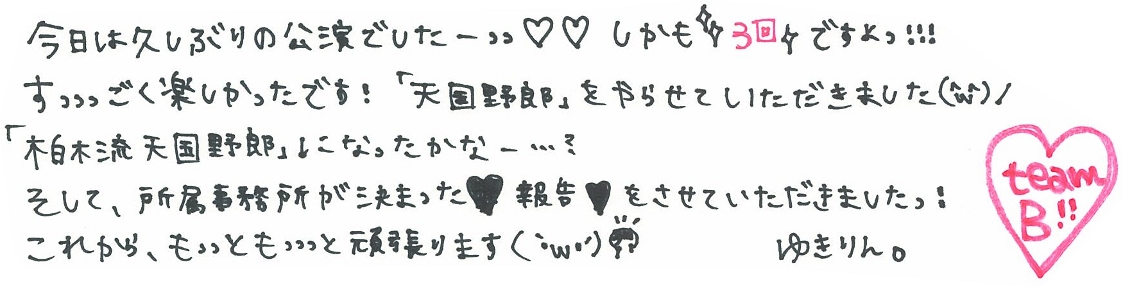 今日は久しぶりの公演でしたーっっ♡♡ しかも3回ですよっ!!!
すっっっごく楽しかったです!「天国野郎」をやらせていただきました(^w^)/
「柏木流天国野郎」になったかなー…?
そして、所属事務所が決まった♥報告♥をさせていただきましたっ!
これから、もっっともっっっと頑張ります(`・w・´)
ゆきりん。
team
B!!